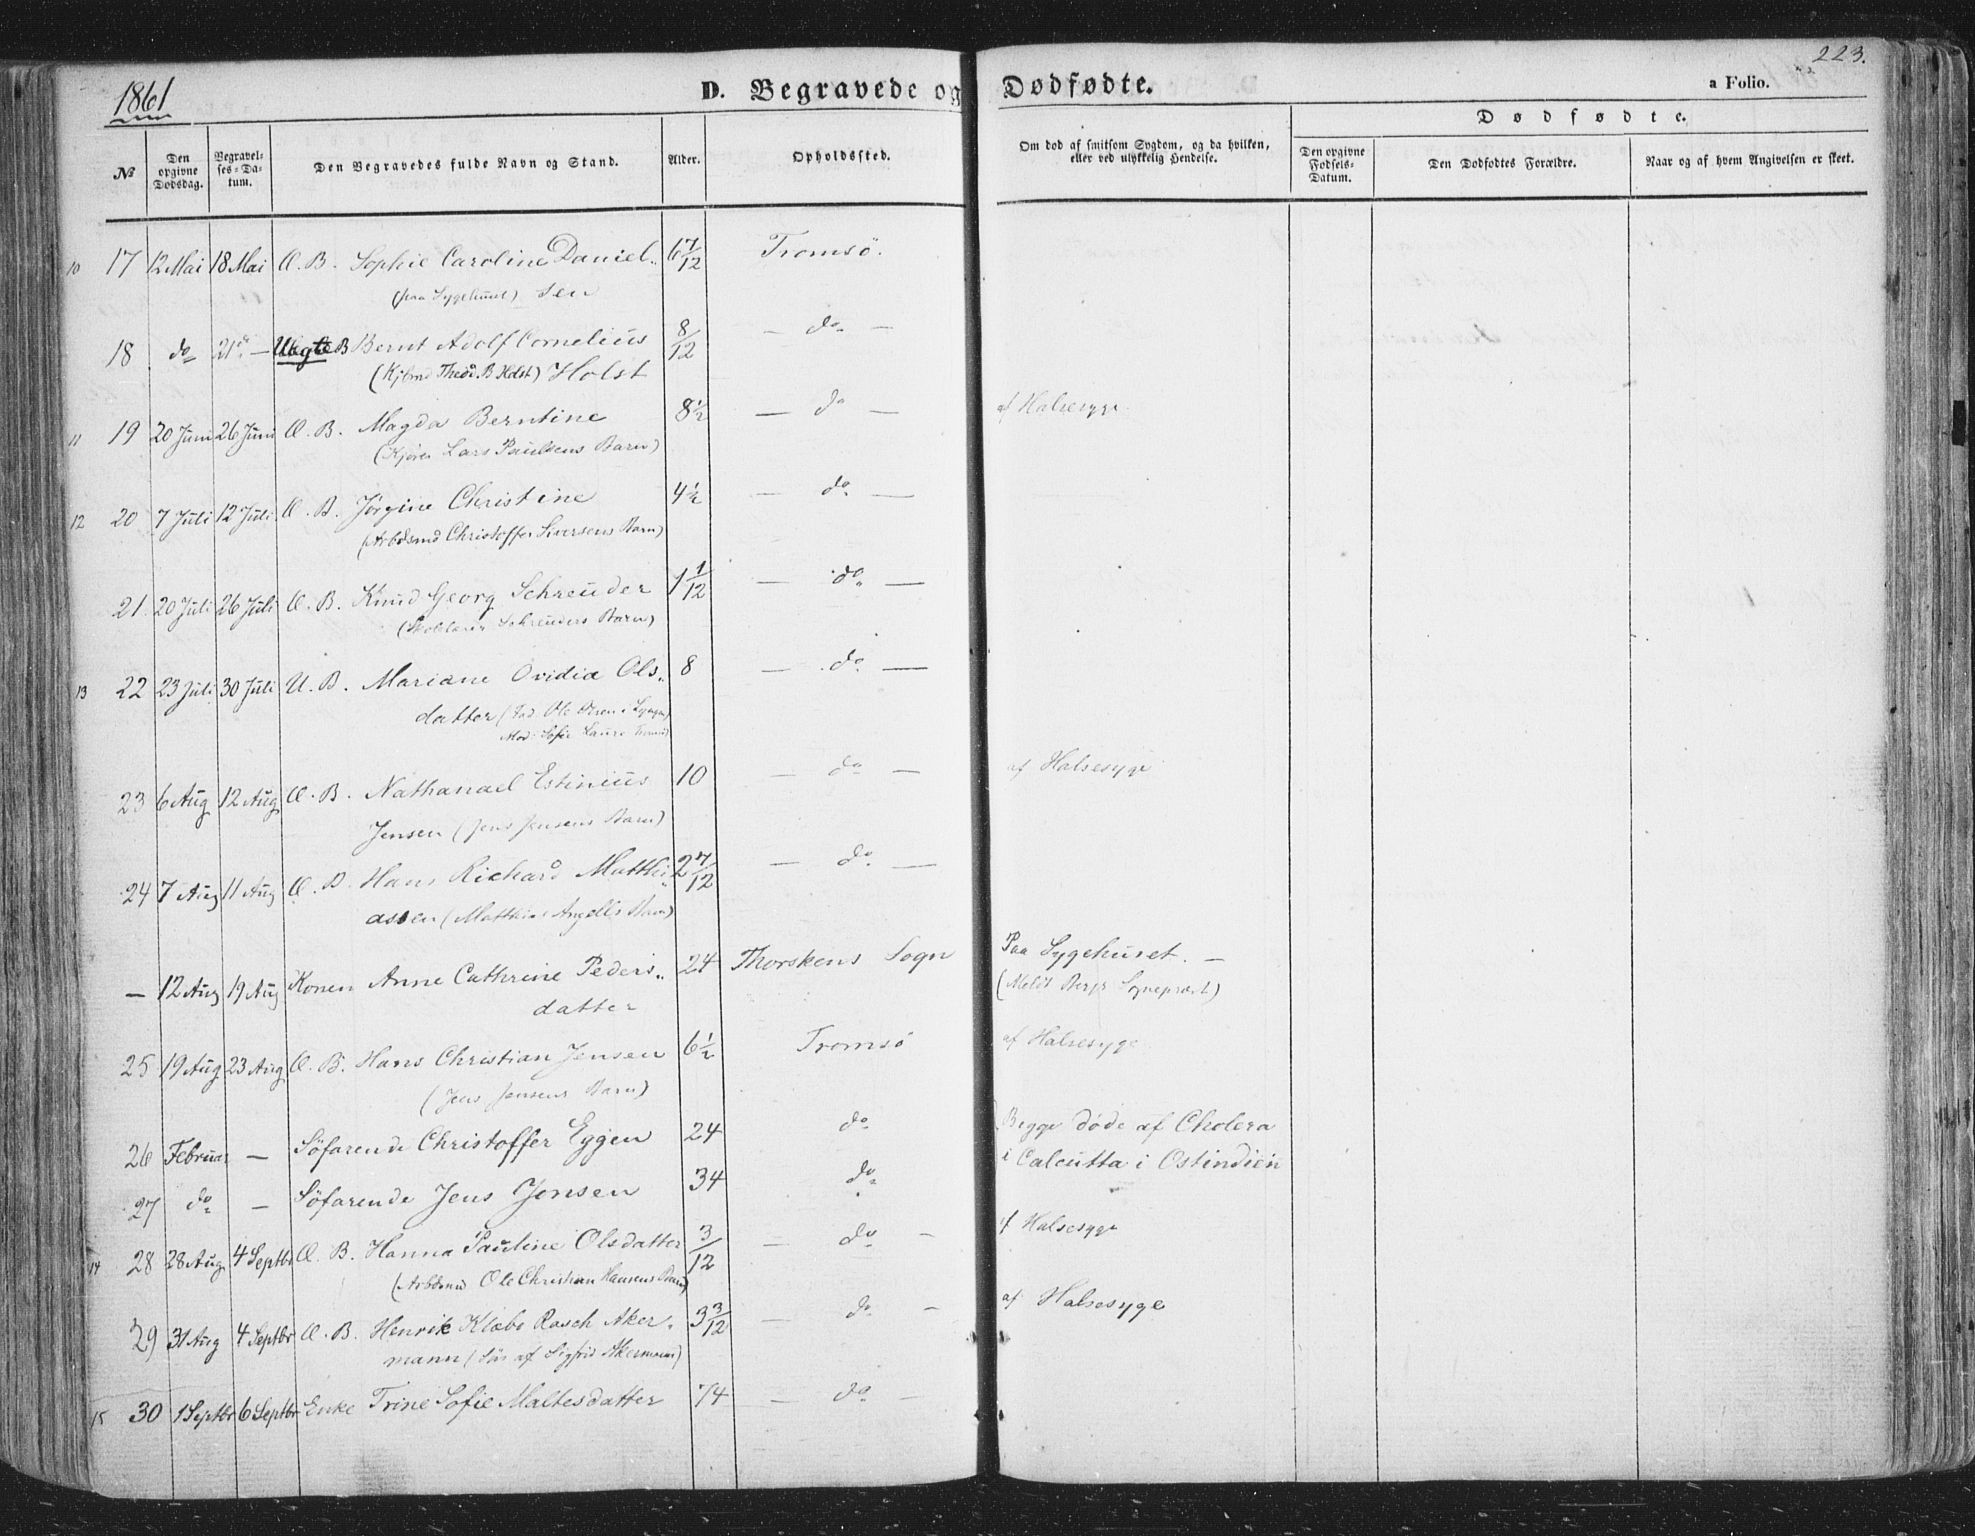 1861
223.
D. Begravede og Dødfødte.
a Folio.
Dødfødte.
№
Den opgivne Dødsdag.
Begravelses-Datum.
Den Begravedes fulde Navn og Stand.
Alder.
Opholdssted.
Om død af smitsom Sygdom, og da hvilken, eller ved ulykkelig Hendelse.
Den opgivne Fødsels-Datum.
Den Dødfødtes Forældre.
Naar og af hvem Angivelsen er skeet.
10 17 12 Mai 18 Mai Æ. B. Sophie Caroline Daniel„ 6 7/12 Tromsö.
(paa Sygehuset) sen
18 do 21 do — Uægte B Bernt Adolf Cornelius 8/12 — do —
(Theod. B Holst) Holst
11 19 20 Juni 26 Juni Æ. B. Magda Berntine 8½ — do — af Halsesyge
(Lars Paulsens Barn)
12 20 7 Juli 12 Juli Æ. B. Jörgine Christine 4½ — do —
(Arbdsmd Christoffer Siversens Barn)
21. 20 Juli 26 Juli Æ. B. Knud Georg Schreuder 1 1/12 — do —
(Skolelærer Schreuders Barn)
13 22 23 Juli 30 Juli U. B. Mariane Ovidia Ols„ 8 — do —
datter (Fad. Ole Olsen i Lyngen
Mod. Sofie
23 6 Aug 12 Aug Æ. B. Nathanael Estinius 10 — do — af Halsesyge
Jensen (Jens Jensens Barn)
24 7 Aug 11 Aug Æ. B. Hans Richard Matthi„ 2 7/12 — do —
assen (Matthias Angells Barn)
— 12 Aug 19 Aug Konen Anne Cathrine Peders„ 24 Thorskens Sogn Paa Sygehuset. —
datter (Meldt Sognepræst)
25 19 Aug 23 Aug Æ. B. Hans Christian Jensen 6½ Tromsö af Halsesyge
(Jens Jensens Barn)
26 Februar — Söfarende Christoffer Eggen 24 do Begge döde af Cholera
27 do — Söfarende Jens Jensen 34 do i Calcutta i Ostindien
14 28 28 Aug 4 Septbr Æ. B. Hanna Pauline Olsdatter 3/12 — do — af Halsesyge
(Arbdsmd Ole Christian Hansens Barn)
29 31 Aug 4 Septbr Æ. B. Henrik Klæbo Rasch Aker„ 3 3/12 — do — af Halsesyge
mann (Sön af Sigfrid Akermann)
15 30 1 Septbr 6 Septbr Enke Trine Sofie Maltesdatter 74 — do —